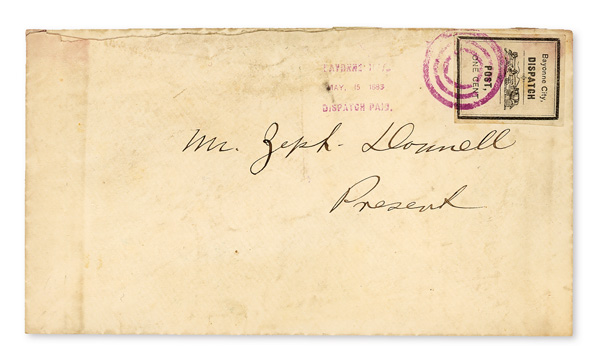 BAYONNE CITY,
MAY, 15 1883
DISPATCH PAID.
Bayonne City,
DISPATCH
POST,
ONE CENT
Mr. Zeph. Donnell
Present